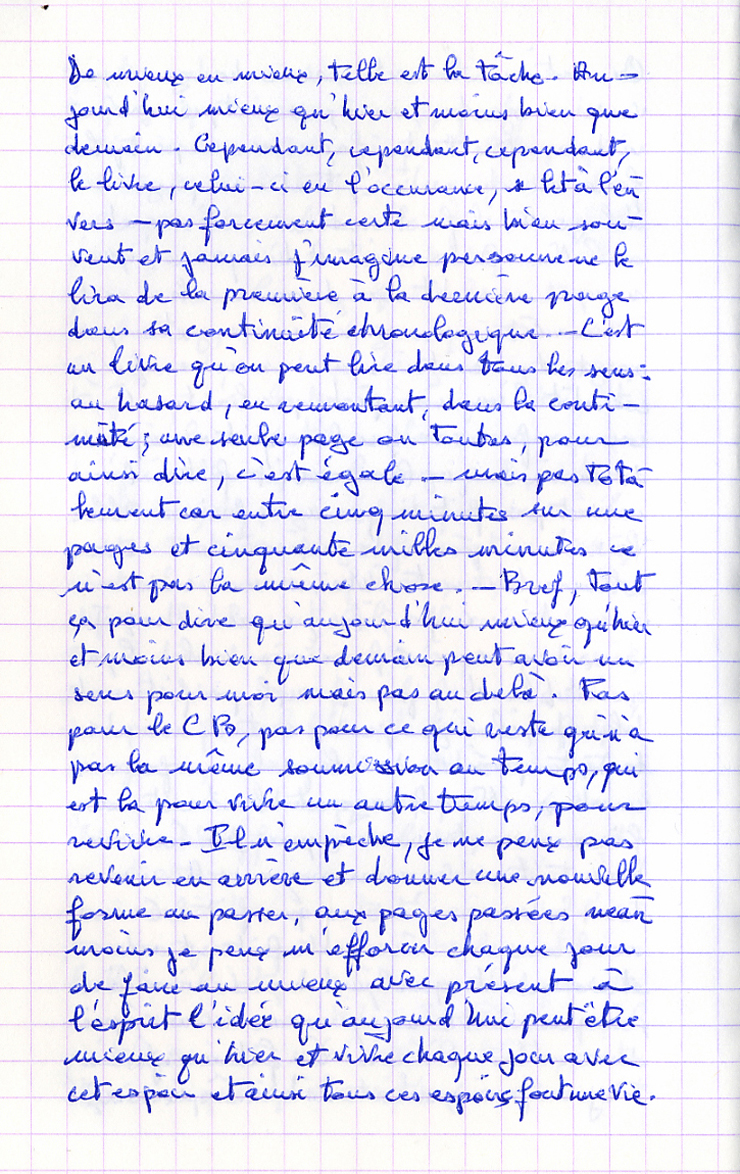 De mieux en mieux, telle est la tâche. Au-
jourd'hui mieux qu'hier et moins bien que
demain. Cependant, cependant, cependant,
le livre, celui-ci en l'occurance, lit à l'en
vers – pas forcement certe mais bien sou-
vent et jamais j'imagine personne ne le
lira de la première à la dernière page
dans sa continuité chronologique. – C'est
un livre qu'on peut lire dans tous les sens:
au hasard, en remontant, dans la conti-
nuité; une seule page ou toutes, pour
ainsi dire, c'est égale – mais pas tota
lement car entre cinq minutes sur une
pages et cinquante milles minutes ce
n'est pas la même chose. – Bref, tout
ça pour dire qu'aujourd'hui mieux qu'hier
et moins bien que demain peut avoir un
sens pour moi mais pas au delà. Pas
pour le CB, pas pour ce qui reste qui n'a
pas la même soumission au temps, qui
est la pour vivre un autre temps, pour
revivre. Il n'empêche, je ne peux pas
revenir en arrière et donner une nouvelle
forme au passer, aux pages passées nean
moins je peux m'efforcer chaque jour
de faire au mieux avec présent à
l'esprit l'idée qu'aujourd'hui peut être
mieux qu'hier et vivre chaque jour avec
cet espoir et ainsi tous ces espoirs font une vie.